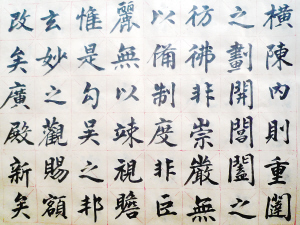 橫陳內則重闈
之劃開閶闔之
彷彿非崇嚴無
以備制度非臣
麗無以竦視瞻
惟是勾吴之邦
玄妙之觀賜額
改矣廣殿新矣